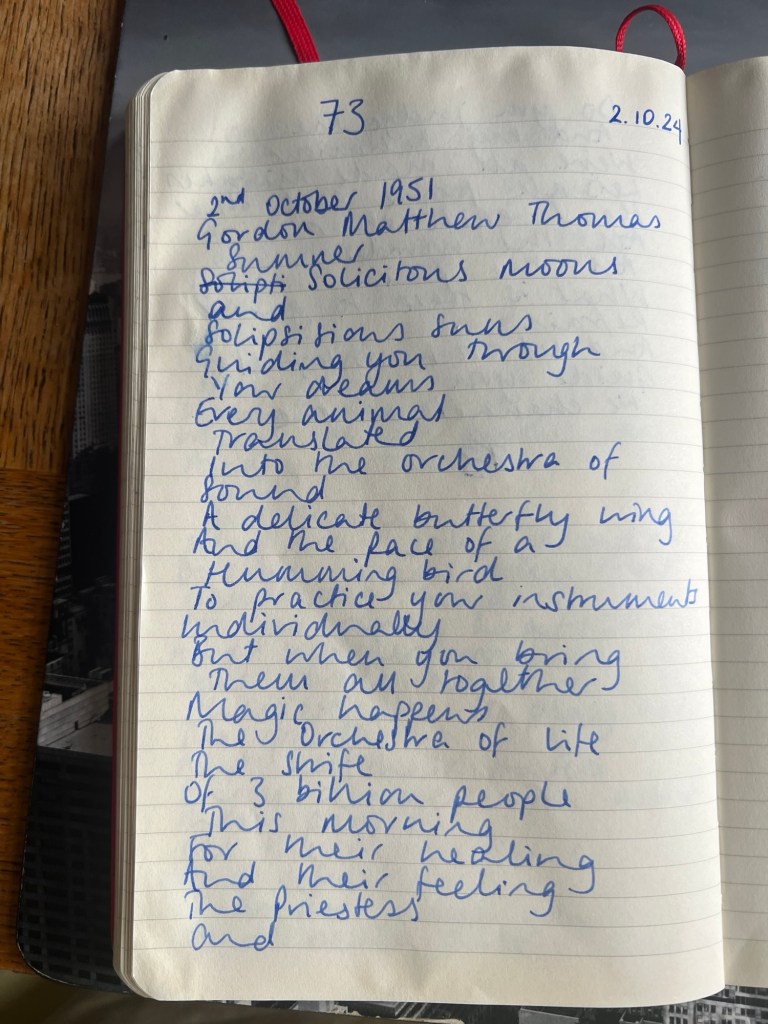 73
2.10.24
2nd October 1951
Gordon Matthew Thomas
Sumner
Solipti Solicitous moons
and
Solipsitious suns
Guiding you through
Your dreams
Every animal
Translated
Into the orchestra of
Sound
A delicate butterfly wing
And the pace of a
Humming bird
To practice your instruments
Individually
But when you bring
Them all together
Magic happens
The Orchestra of Life
The strife
Of 3 billion people
This morning
For their healing
And their feeling
The priestess
and